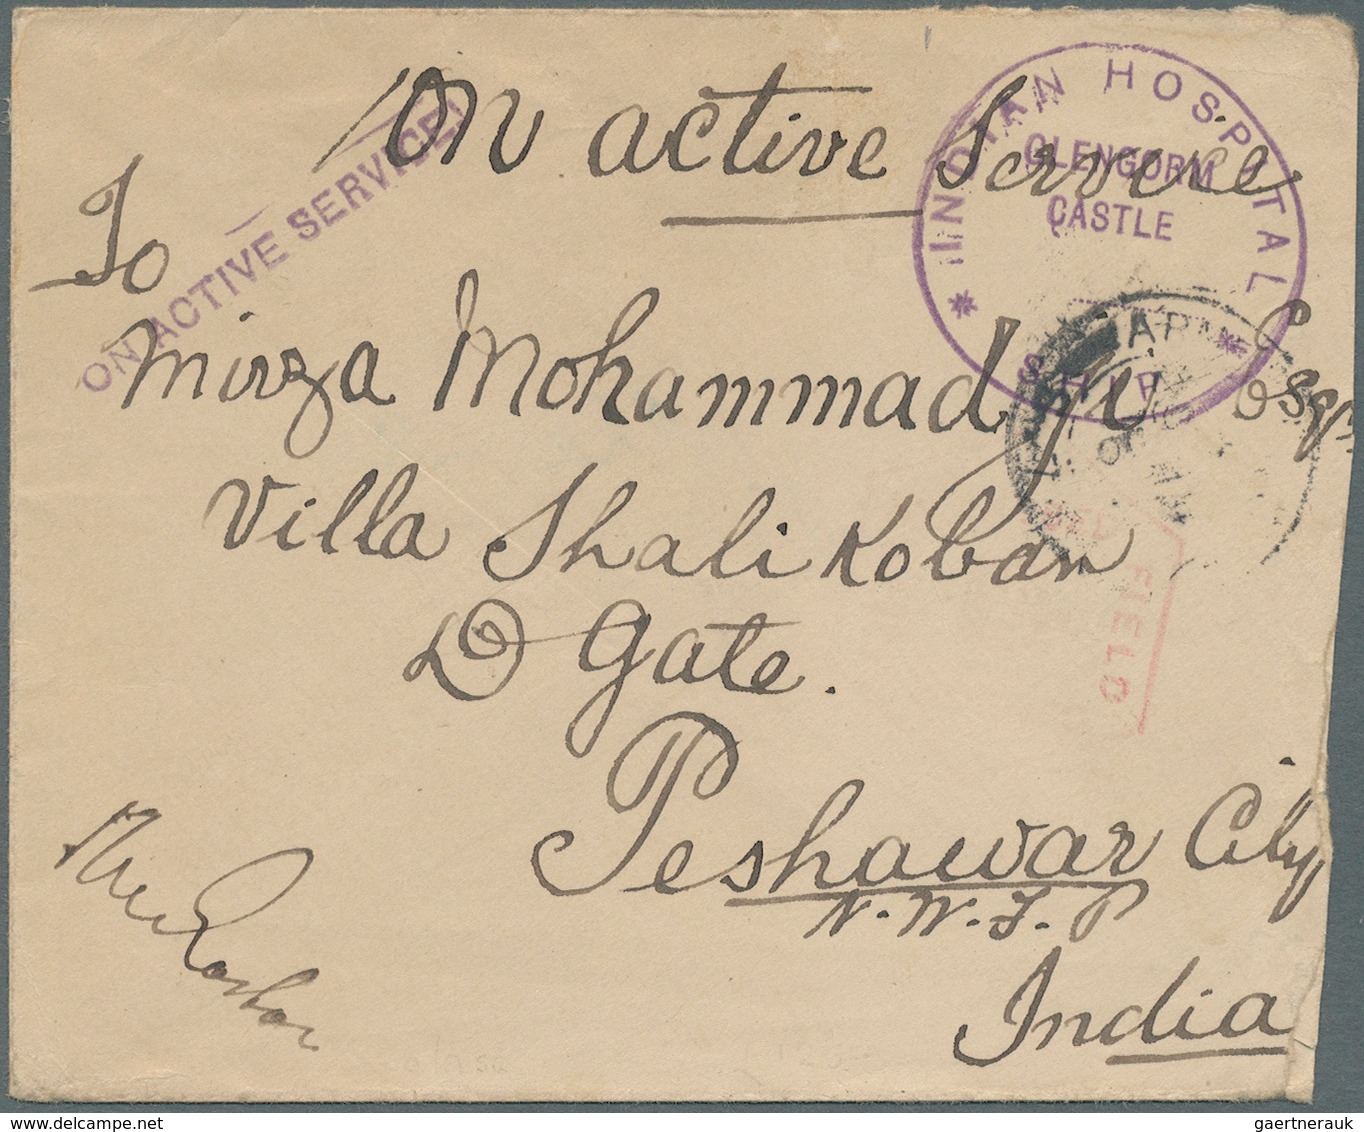 On active Service
ON ACTIVE SERVICE.
INDIAN HOSPITAL
GLENGORM
CASTLE
SHIP
To
Mirza Mohammad Ji Esqr.
Villa Shali Koban
D gate.
FIELD
Peshawar City
N. W. F. P
India
gaertnerauk